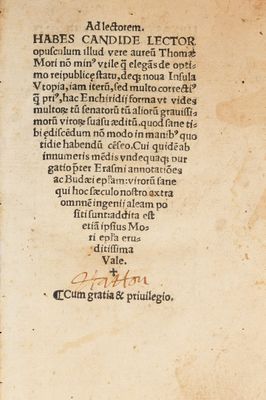 Ad lectorem.
HABES CANDIDE LECTOR
opusculum illud vere aureũ Thomæ
Mori nõ min⁹ vtile q̃ elegãs de opti
mo reipublicę statu, deq; noua Insula
Vtopia, iam iterũ, sed multo correcti⁹
q̃ pri⁹, hac Enchiridii forma vt vides
multorꝝ tũ senatorũ tũ aliorũ grauissi-
morũ virorꝝ suasu æditũ, quod sane ti
bi ędiscẽdum nõ modo in manib⁹ quo
tidie habendũ cẽseo. Cui quidẽ ab
innumeris mẽdis vndequaq; pur
gatio p̃ter Erasmi annotatiões
ac Budæi ep̃lam: virorũ sane
qui hoc sæculo nostro extra
omnẽ ingenii aleam po
siti sunt: addita est
etiã ipsius Mo-
ri ep̃la eru-
ditissima
Vale.
✝
Hatton
¶Cum gratia & priuilegio.